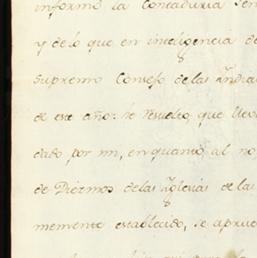 informó la Contaduria Gen
y delo que en inteligencia de
Supremo Consejo delas Yndias
de este año: he resuelto, que lleva
dado por mi, en quanto al no
de Diezmos delas Yglesias de las
memente establecido, se aprue